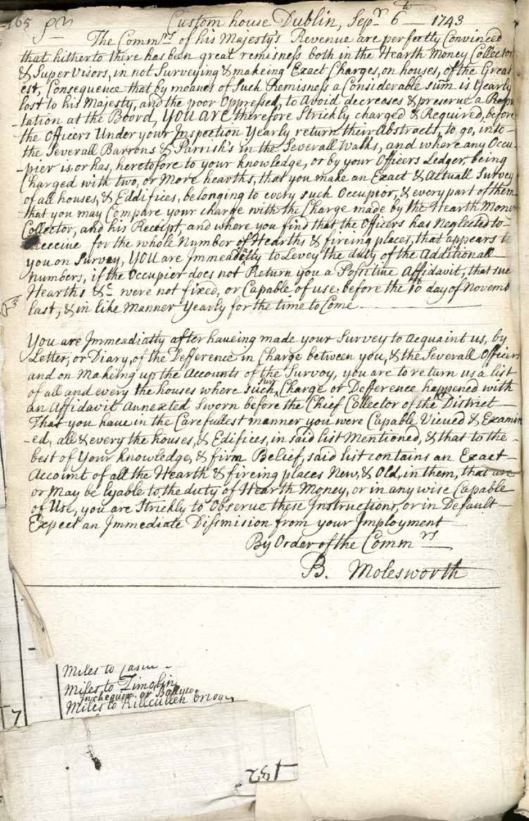 165 pr
Custom house Dublin, Sepr. 6th 1743
The Commrs of his Majesty's Revenue are perfectly Convinced
that hitherto there has been great remisness both in the Hearth Money Collector
& SuperVisors, in not Surveying & makeing Exact Charges, on houses, of the Great
est, Consequence that by meanes of Such Remisness a Considerable sum is Yearly
Lost to his Majesty, and the poor Oppressed, to Avoid decreases & preserve a Repu
tation at the Board, YOU ARE therefore Strickly charged & Required, before
the Officers Under your Inspection Yearly return their Abstracts, to go, into
the Severall Barrons & Parrish's in the Severall Walks, and where any Occu
pier is or has, heretofore to your knowledge, or by your Officers Ledger being
Charged with two, or More hearths, that you make an Exact & Actuall Survey
of all houses, & Eddifices, belonging to every such Occupier, & every part of them
that you may Compare your charge with the Charge made by the Hearth Money
Collector, and his Receipt, and where you find that the Officers has Neglected to
Receive for the whole Number of Hearths & fireing places, that appears to
you on Survey, YOU are Immeadiatly to Levey the duty of the Additionall
Numbers, if the Occupier does not Return you a Positive Affidavit, that such
Hearths &c were not fixed, or Capable of use, before the 10th day of Novemb
last, & in like Manner Yearly for the time to Come
You are Immeadiatly after haveing made your Survey to Acquaint us, by
Letter, or Diary, of the Defference in Charge between you, & the Severall Officers
and on Makeing up the Accounts of the Survey, you are to return us a list
of all and every the houses where such any Charge or Defference happened with
an Affidavit Annexted Sworn before the Chief Collector of the District
That you have in the Carefullest manner you were Capable Viewed & Examin
-ed, all & every the houses, & Edifices, in said list Mentioned, & that to the
best of Your knowledge, & firm Belief, said list contains an Exact
Account of all the Hearth & fireing places New, & Old, in them, that are
or May be lyable to the duty of Hearth Money, or in any wise Capable
of Use, you are Strickly to Observe these Instructions, or in Default
Expect an Immediate Dismision from your Imployment
By Order of the Commrs
B. Molesworth
Miles to
Miles to Timolin
Miles to Killcullen
17
182